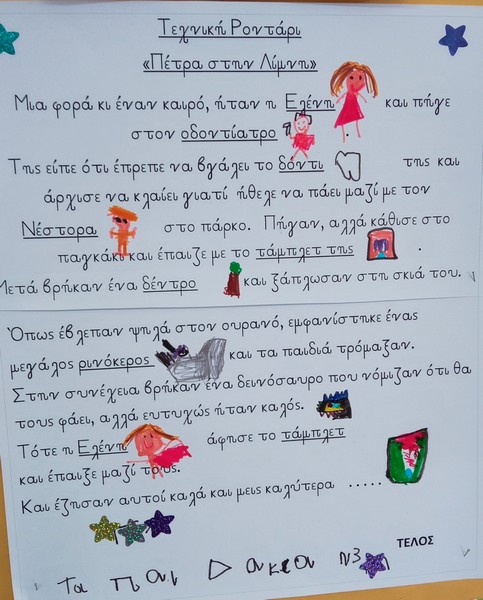 Τεχνική Ροντάρι
«Πέτρα στην Λίμνη»
Μια φορά κι έναν καιρό, ήταν η Ελένη και πήγε
στον οδοντίατρο .
Της είπε ότι έπρεπε να βγάλει το δόντι της και
άρχισε να κλαίει γιατί ήθελε να πάει μαζί με τον
Νέστορα στο πάρκο. Πήγαν, αλλά κάθισε στο
παγκάκι και έπαιζε με το τάμπλετ της .
Μετά βρήκαν ένα δέντρο και ξάπλωσαν στη σκιά του.
Όπως έβλεπαν ψηλά στον ουρανό, εμφανίστηκε ένας
μεγάλος ρινόκερος και τα παιδιά τρόμαξαν.
Στην συνέχεια βρήκαν ένα δεινόσαυρο που νόμιζαν ότι θα
τους φάει, αλλά ευτυχώς ήταν καλός.
Τότε η Ελένη άφησε το τάμπλετ
και έπαιξε μαζί τους.
Και έζησαν αυτοί καλά και μεις καλύτερα .....
ΤΕΛΟΣ
Τα παιΔακια Ν3